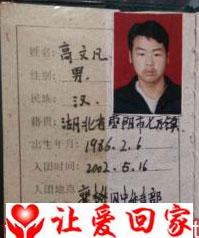 姓名: 高文凡
性别: 男.
民族: 汉.
籍贯: 湖北省枣阳市
出生年月: 1986.2.6
入团时间: 2002.5.16
入团地点:
让爱回家